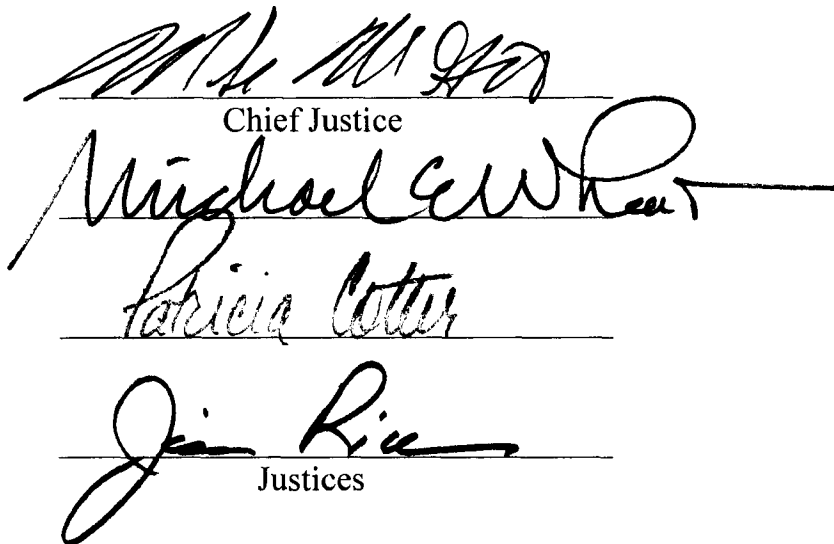 Mike McGrath
Chief Justice
Michael E Wheat
Patricia Cotter
Jim Rice
Justices